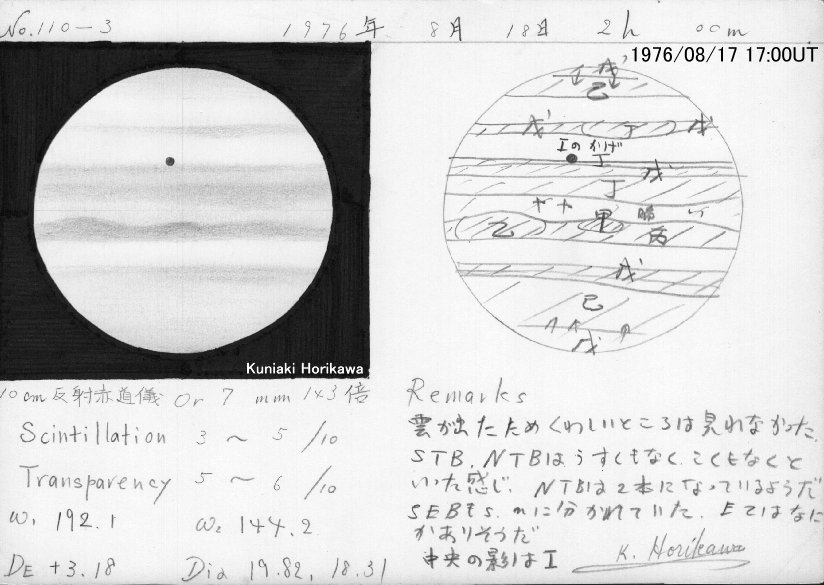 No. 110-3 1976年 8月 18日 2h 00m
1976/08/17 17:00UT
戊
己
戊 丁 戊
Iのかげ
丁
戊
丁
乙 里 丙
戊
己
戊
Kuniaki Horikawa
10cm反射赤道儀 Or 7mm 143倍
Scintillation 3〜5/10
Transparency 5〜6/10
ω₁ 192.1 ω₂ 144.2
DE +3.18 Dia 19.82, 18.31
Remarks
雲が出たためくわしいところは見れなかった.
STB.NTBはうすくもなく.こくもなくと
いった感じ. NTBは2本になっているようだ
SEBもs.nに分かれていた. Eではなに
かありそうだ
中央の影はI
K. Horikawa